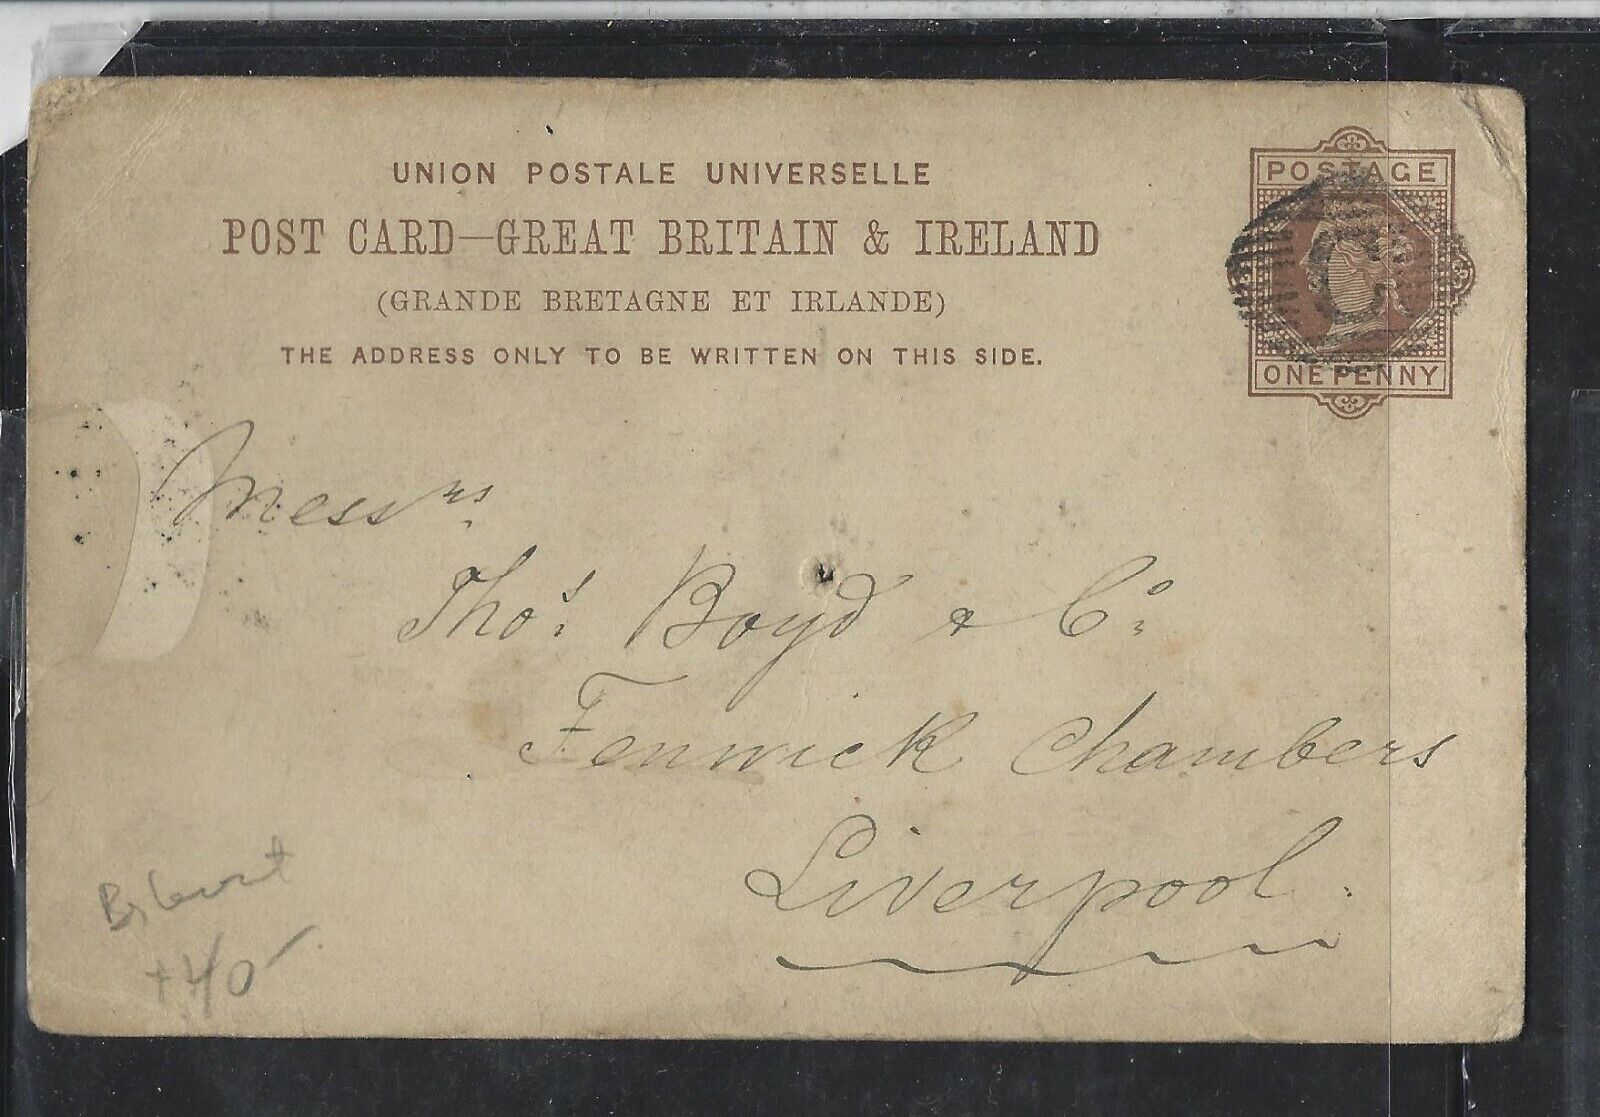 UNION POSTALE UNIVERSELLE
POST CARD—GREAT BRITAIN & IRELAND
(GRANDE BRETAGNE ET IRLANDE)
THE ADDRESS ONLY TO BE WRITTEN ON THIS SIDE.
POSTAGE
ONE PENNY
Messrs.
Thos. Boyd & Co.
Fenwick Chambers
Liverpool.
+40-